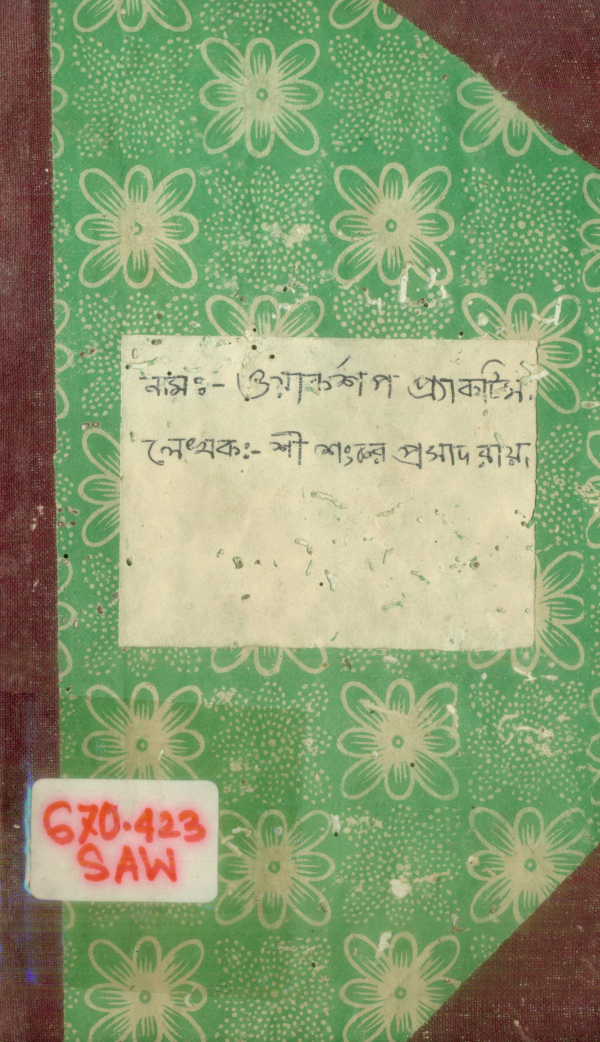 নামঃ- ওয়ার্কশপ প্র্যাকটিস
লেখকঃ- শ্রী শংকর প্রসাদ রায়।
670.423
SAW